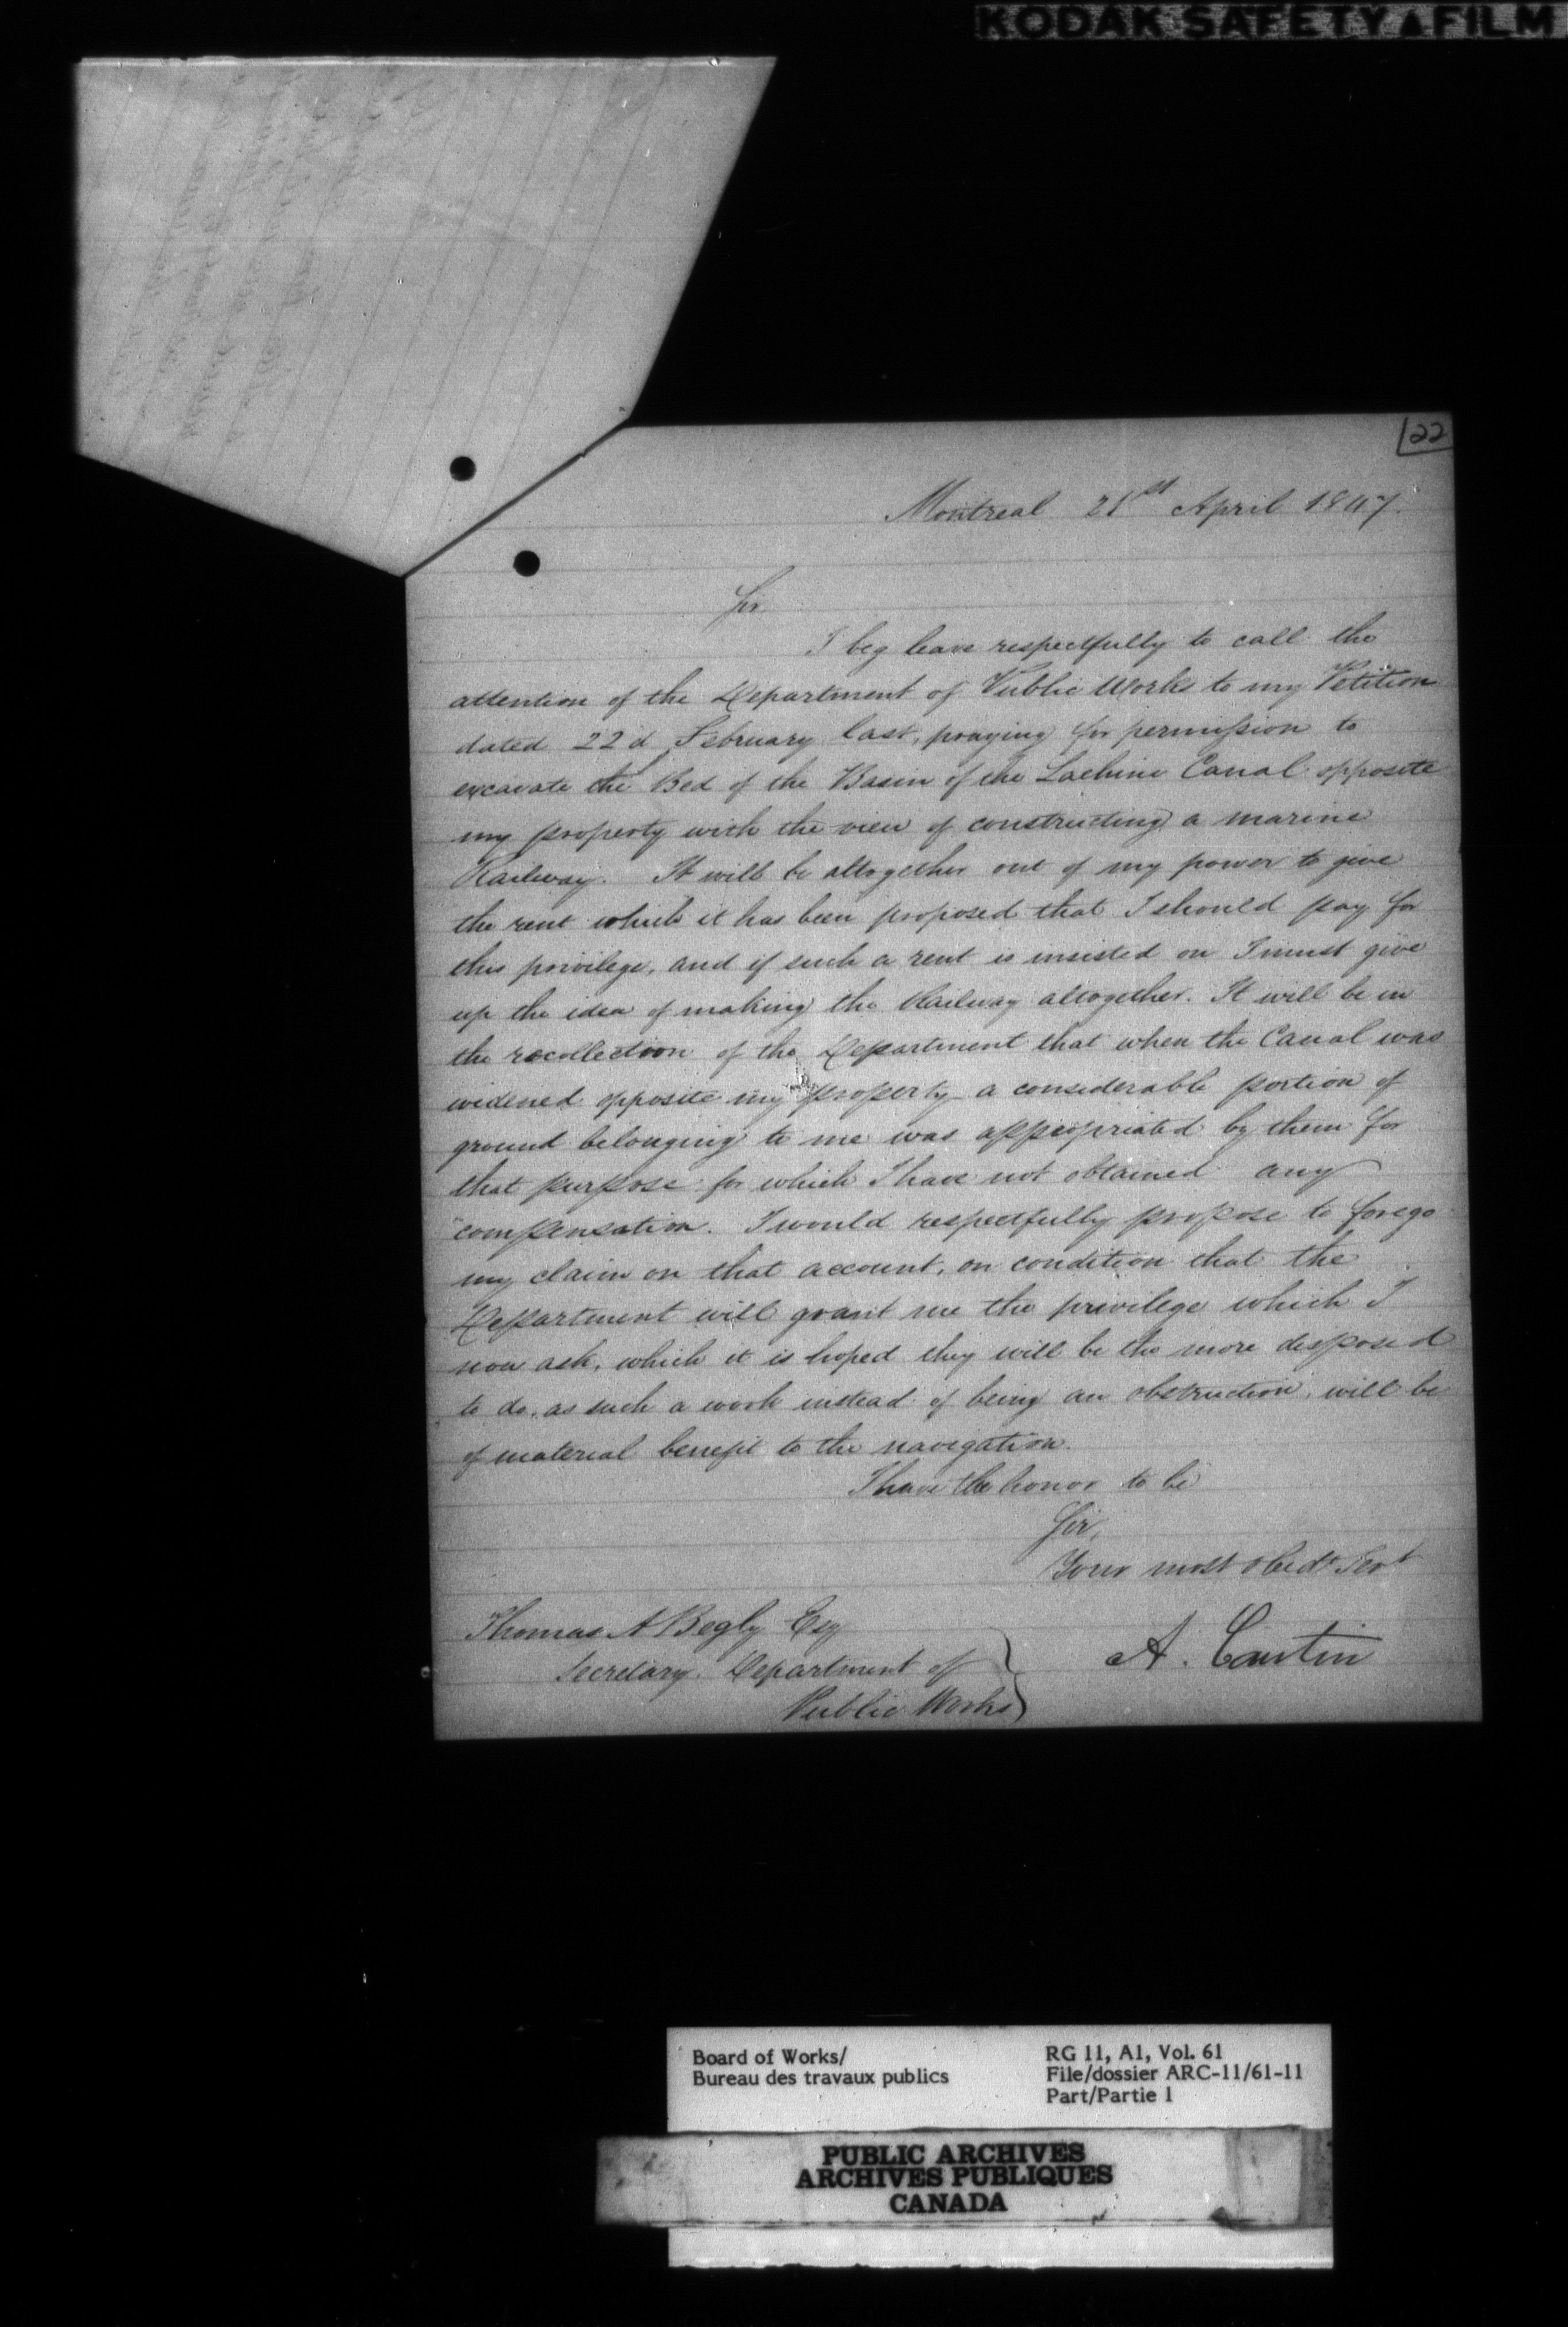 KODAK SAFETY FILM
122
Montreal 21st April 1847.
Sir
I beg leave respectfully to call the
attention of the Department of Public Works to my Petition
dated 22d February last, praying for permission to
excavate the Bed of the Basin of the Lachine Canal opposite
my property with the view of constructing a marine
Railway. It will be altogether out of my power to give
the rent which it has been proposed that I should pay for
this privilege, and if such a rent is insisted on I must give
up the idea of making the Railway altogether. It will be in
the recollection of the Department that when the Canal was
widened opposite my property a considerable portion of
ground belonging to me was appropriated by them for
that purpose for which I have not obtained any
compensation. I would respectfully propose to forego
my claim on that account, on condition that the
Department will grant me the privilege which I
now ask, which it is hoped they will be the more disposed
to do, as such a work instead of being an obstruction, will be
of material benefit to the navigation.
I have the honor to be
Sir,
Your most obedt Servt
Thomas A Begly Esq
Secretary Department of
Public Works
A. Cantin
Board of Works/
Bureau des travaux publics
RG 11, A1, Vol. 61
File/dossier ARC-11/61-11
Part/Partie 1
PUBLIC ARCHIVES
ARCHIVES PUBLIQUES
CANADA